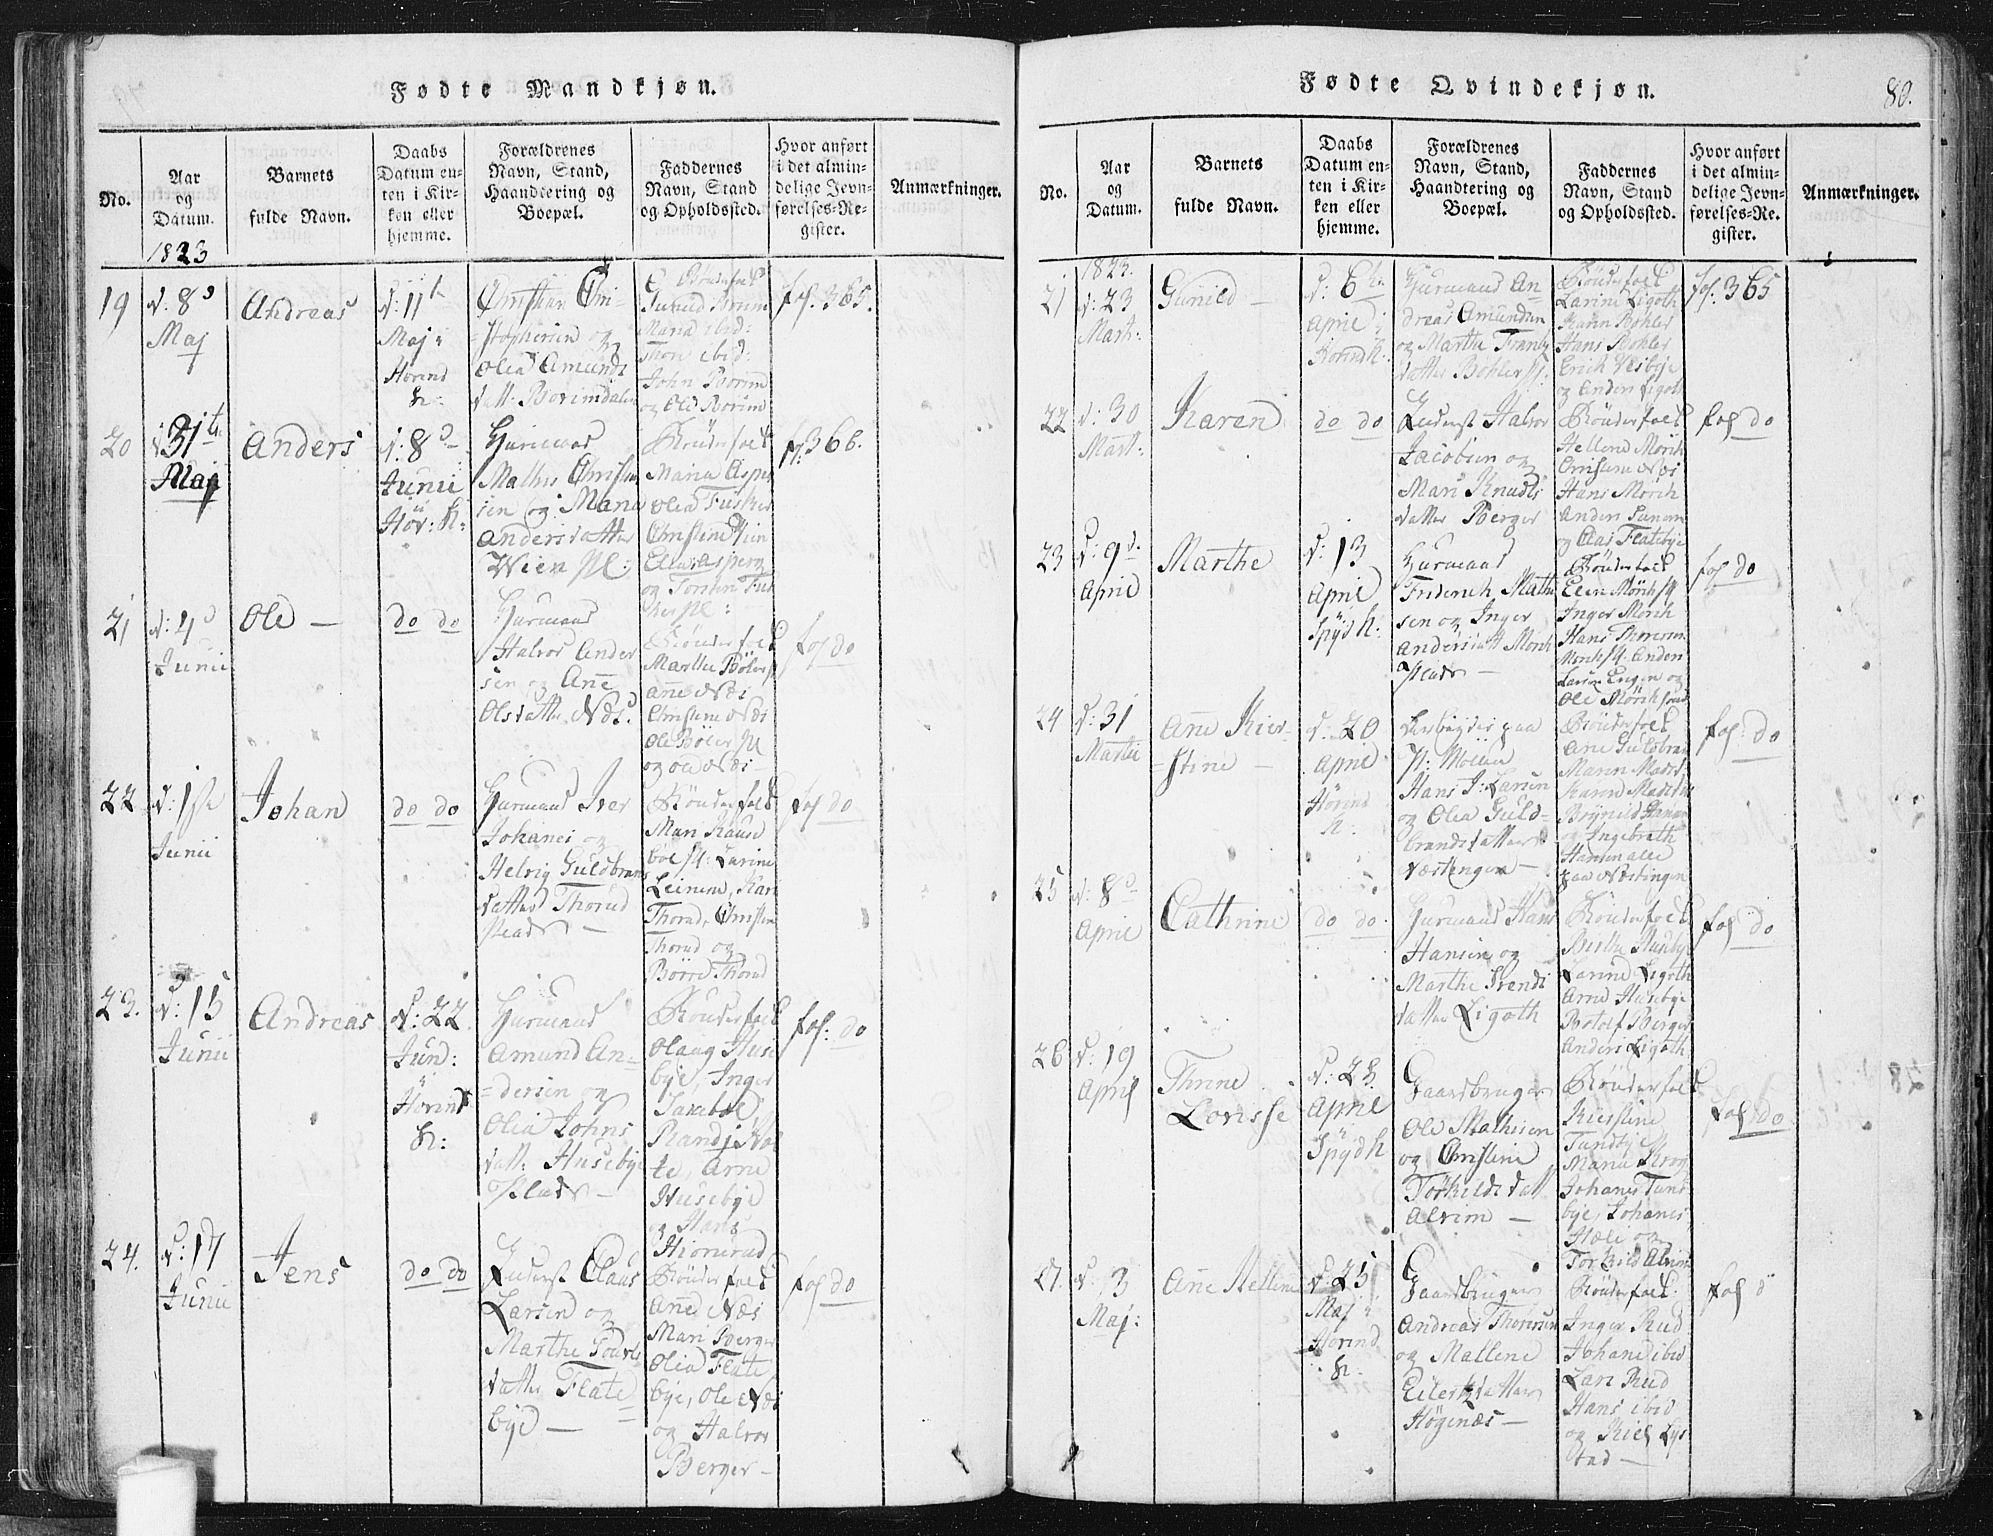 Fødte Mandkjøn.
No.
Aar
og
Datum.
Barnets
fulde Navn.
Daabs
Datum en-
ten i Kir-
ken eller
hjemme.
Forældrenes
Navn, Stand,
Haandtering og
Boepæl.
Faddernes
Navn, Stand
og Opholdssted.
Hvor anført
i det almin-
delige Jevn-
førelses-Re-
gister.
Anmærkninger.
1823
19
d: 8
Maj
Andreas
d: 11
Maj i
Horind
k:
Christian Chri-
=stophersen og
Olia Amunds
datt: Borimdalen
Bønderfolk
Maria ibid:
Thore ibid:
John Borim
og Ole Borim
fol. 365.
20
31te
Maj
Anders
d: 8
Junii
i
Høv: K:
Huusmand
Mathis Christian
sen og Maria
Andersdatter
Wien Pl:
Bønderfolk
Maria Asper
Olia Fusker
Christine Wien
Asperg
og Torsten Fus
ker Pl:
fol. 366.
21
d: 4
Junii
Ole —
do do
Huusmand
Halvor Ander
sen og Ane
Olsdatter Næs.
Bønderfolk
Marthe Böler
Anne Næs
Christine Næs
Ole Böler Pl
og Ole Næs —
fol do
22
d: 1ste
Junii
Johan
do do
Huusmand Iver
Johanes og
Helvig Guldbrans
datter Thorud
Plads —
Bønderfolk
Mari Hause
böe Pl: Larine
Leinene, Kari
Thorud, Christen
Thorud og
Börre Thorud
fol do
23.
d: 15
Junii
Andreas
d: 22
Juni:
i
Hörind
K:
Huusmand
Amund An-
=dersen og
Olia Johns
datt: Husebye
Plads —
Bønderfolk
Olaug Huse
bye, Inger
Randi Hol
te, Arne
Husebye
og Hans
Hiornerud
fol: do
24.
d: 17
Junii
Jens
do do
Inderst Claus
Larsen og
Marthe Povels
datter Flate
=bye —
Bønderfolk
Anne Næs
Mari Berger
Olia Flate
bye, Ole Næs
og Halvor
Berger —
fol do
Fødte Qvindekjøn.
80.
No.
Aar
og
Datum.
Barnets
fulde Navn.
Daabs
Datum en-
ten i Kir-
ken eller
hjemme.
Forældrenes
Navn, Stand,
Haandtering og
Boepæl.
Faddernes
Navn, Stand
og Opholdssted.
Hvor anført
i det almin-
delige Jevn-
førelses-Re.
gister.
Anmærkninger.
1823.
21
d: 23
Mart:
Gunild —
d: 6te
April i
Horind K:
Huusmand An-
dreas Amundsen
og Marthe Frants
datter Bøhler Pl:
Bønderfolk
Larine Ligoth
Karn Bøhler
Hans Bøhler
Erich Væsbye
og Anders Ligoth
fol: 365
22
d: 30
Mart:
Karen
do do
Inderst Halvor
Jacobsen og
Mari Knuds
datter Berger
Bønderfolk
Hellene Mörch
Christine Næs
Hans Mörch
Anders
og Claus Flatebye
fol do
23
d: 9d.
April
Marthe
d: 13
April
i
Spydk:
Huusmand
Friderich Mathi
sen og Inger
Andersdatt Mörch
Plads —
Bønderfolk
Elen Mörch Pl
Inger Mörch
Hans Thoresen
Mörch Pl: Anders
Larsen Engen og
Ole Mörch
fol do
24
d: 31
Martii
Anne Kier-
=stine —
d: 20
April
i
Hörind
K:
paa
Pl: Moelen
Hans J: Larsen
og Olia Guld-
brandsdatter
Næstengen —
Bønderfolk
Ane Guldbran
Maren Madsd
Karen Madsdat
Brynild Hansen
og Ingebreth
Hansen alle
paa Næstingen
fol: do
25
d: 8
April
Cathrine
do do.
Huusmand Hans
Hansen og
Marthe Svends
datter Ligoth
Bønderfolk
Berthe Husebye
Larine Ligoth
Arne Husebye
Botolf Berger
Anders Ligoth
fol do
26
d: 19
April
Thrine
Lovisse
d: 28.
April
i
Spydk
Gaardbruger
Ole Mathisen
og Christine
Torkildsdatt
Alvim —
Bønderfolk
Kierstine
Tundbye
Marie Krog
Johanes Tund
bye, Johanes
Hæle og
Torkild Alvim
fol do
27.
d: 3
Maj:
Ane Hellene
d: 25
Maj i
Horind
K.
Gaardbruger
Andreas Thoresen
og Mallene
Eilertsdatter
Högenæs —
Bønderfolk.
Inger Rud
Johane ibid
Lars Rud
Hans ibid
og Kield Lys
tad —
fol d